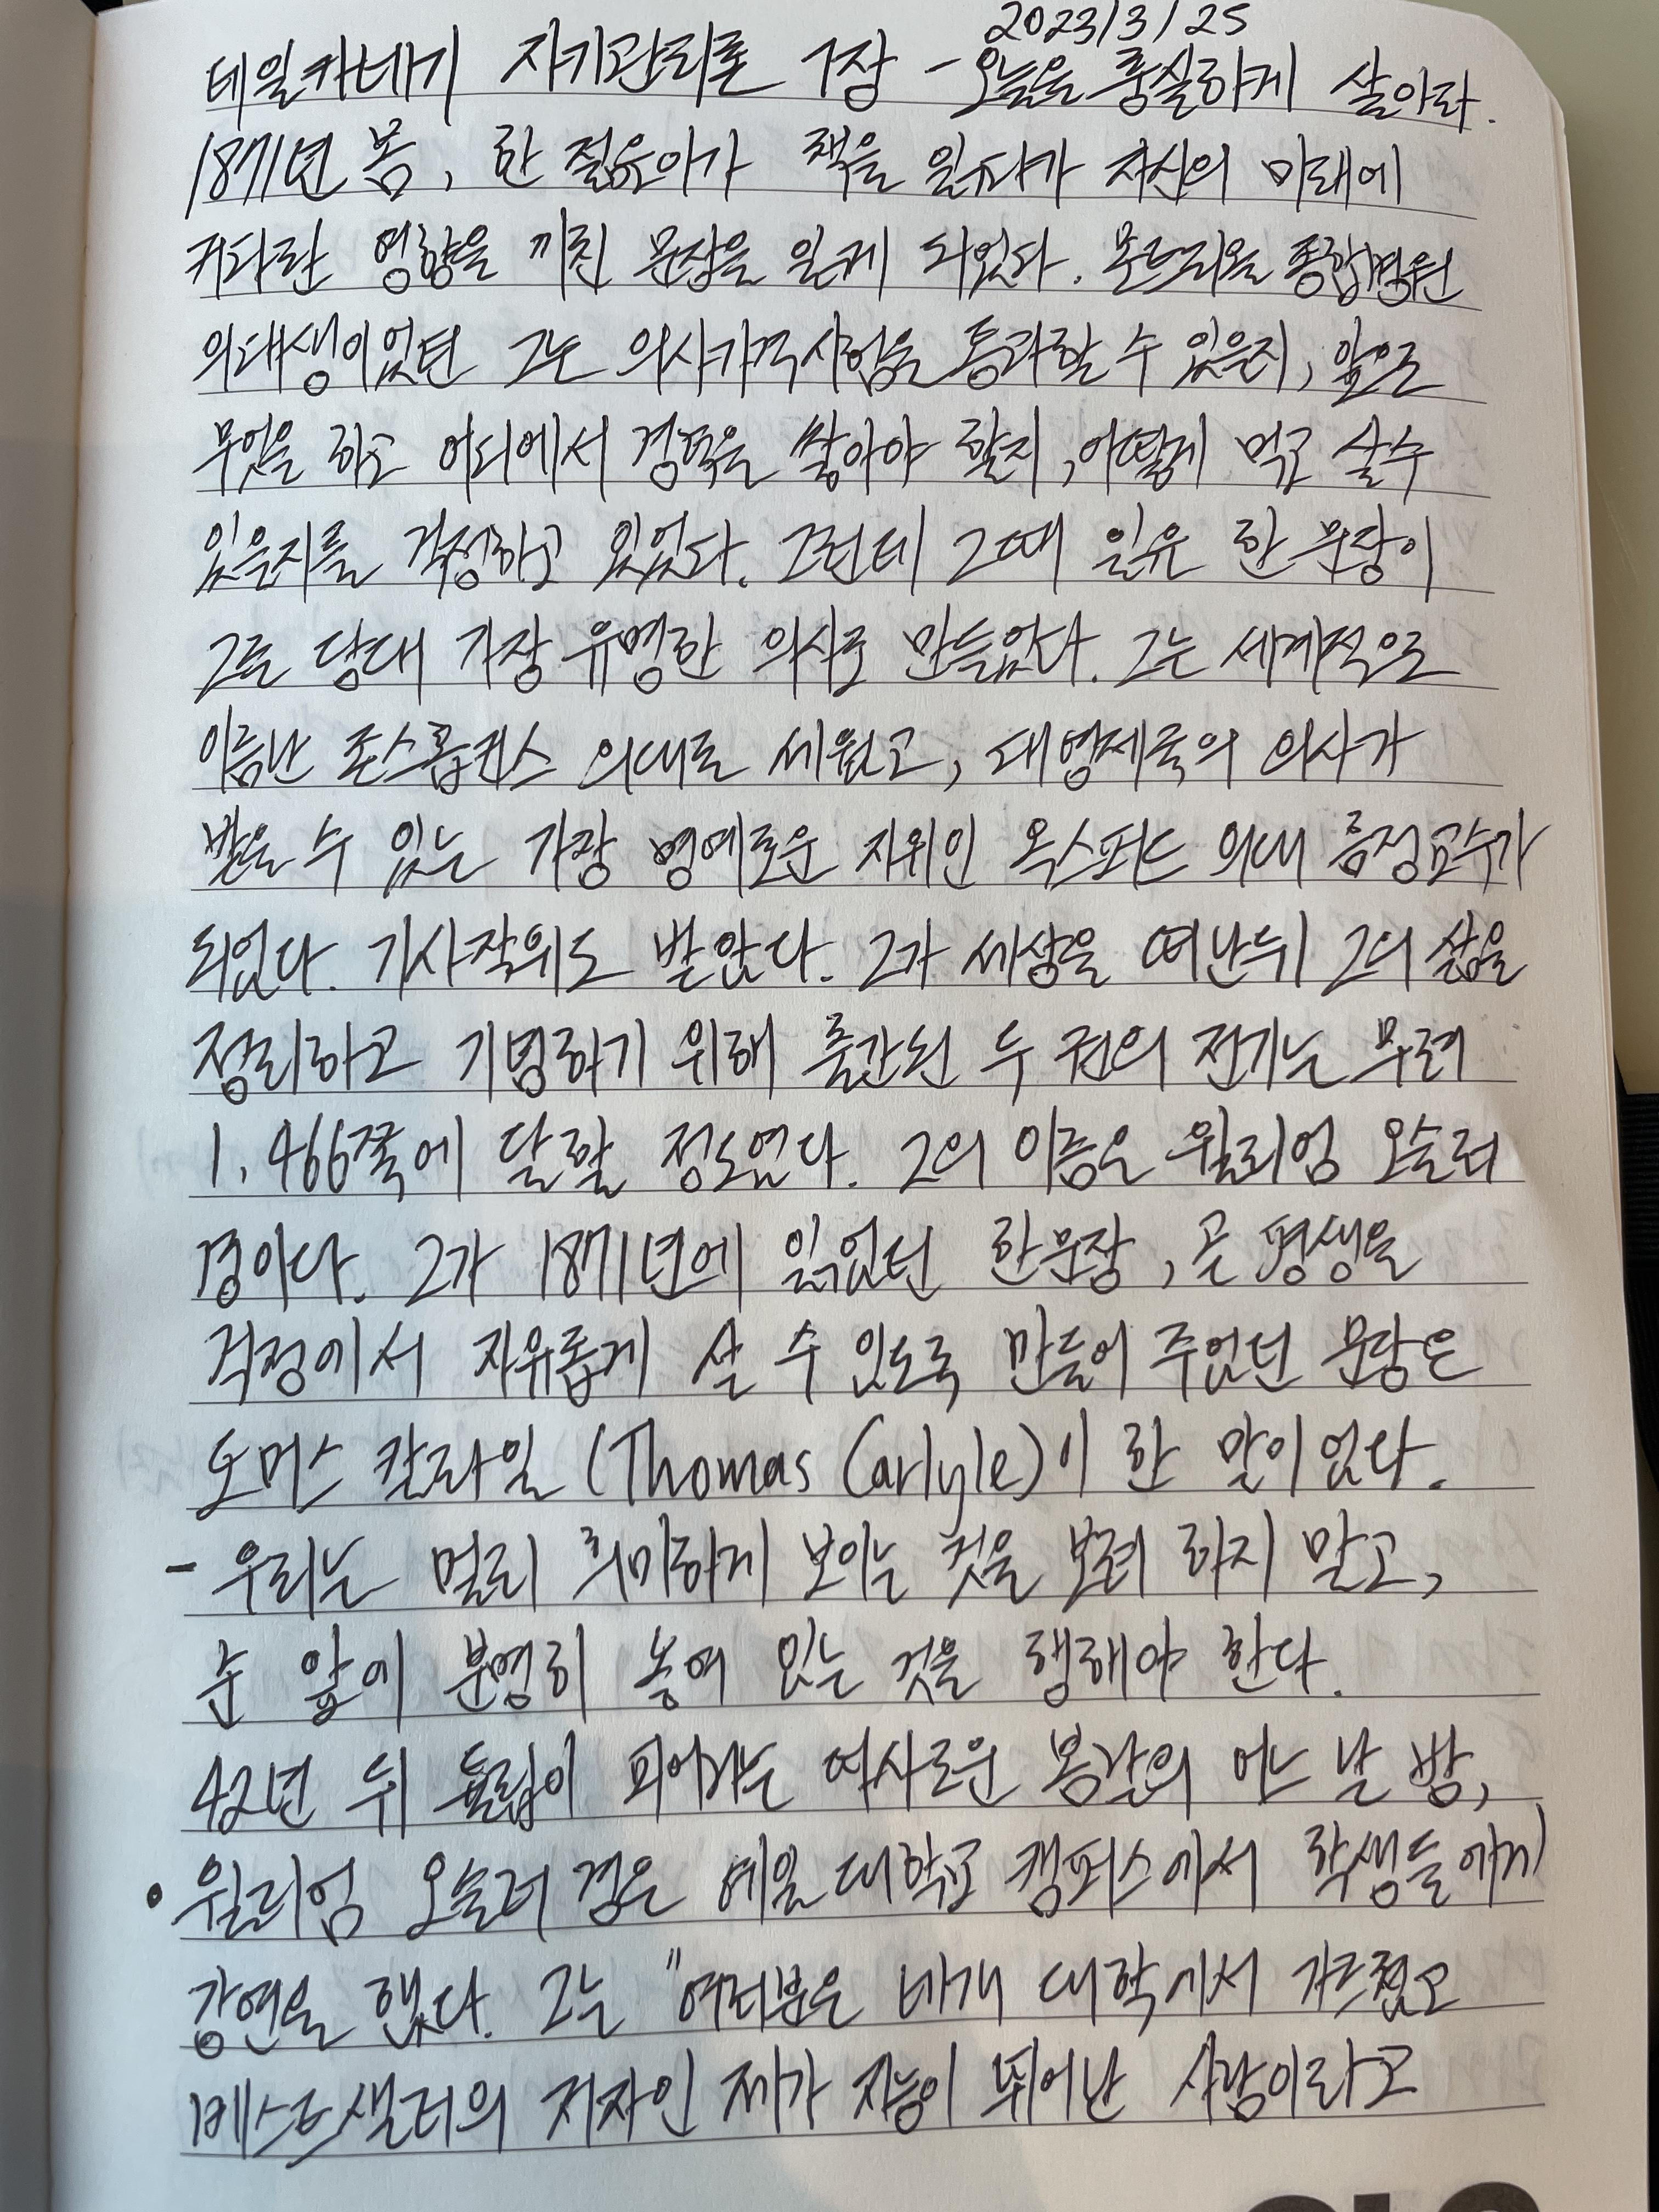 2023/3/25
데일카네기 자기관리론 1장 - 오늘을 충실하게 살아라.
1871년 봄, 한 젊은이가 책을 읽다가 자신의 미래에
커다란 영향을 끼친 문장을 읽게 되었다. 몬트리올 종합병원
의대생이었던 그는 의사자격시험을 통과할 수 있을지, 앞으로
무엇을 하고 어디에서 경력을 쌓아야 할지, 어떻게 먹고 살수
있을지를 걱정하고 있었다. 그런데 그때 읽은 한 문장이
그를 당대 가장 유명한 의사로 만들었다. 그는 세계적으로
이름난 존스홉킨스 의대를 세웠고, 대영제국의 의사가
받을 수 있는 가장 명예로운 지위인 옥스퍼드 의대 흠정교수가
되었다. 기사작위도 받았다. 그가 세상을 떠난뒤 그의 삶을
정리하고 기념하기 위해 출간된 두 권의 전기는 무려
1,466쪽에 달할 정도였다. 그의 이름은 윌리엄 오슬러
경이다. 그가 1871년에 읽었던 한문장, 곧 평생을
걱정에서 자유롭게 살 수 있도록 만들어 주었던 문장은
토머스 칼라일 (Thomas Carlyle)이 한 말이었다.
- 우리는 멀리 희미하게 보이는 것을 보려 하지 말고,
눈 앞에 분명히 놓여 있는 것을 행해야 한다.
42년 뒤 튤립이 피어나는 여사로운 봄날의 어느 날 밤,
• 윌리엄 오슬러 경은 예일 대학교 캠퍼스에서 학생들에게
강연을 했다. 그는 "여러분은 네개 대학에서 가르쳤고
베스트셀러의 저자인 제가 지능이 뛰어난 사람이라고